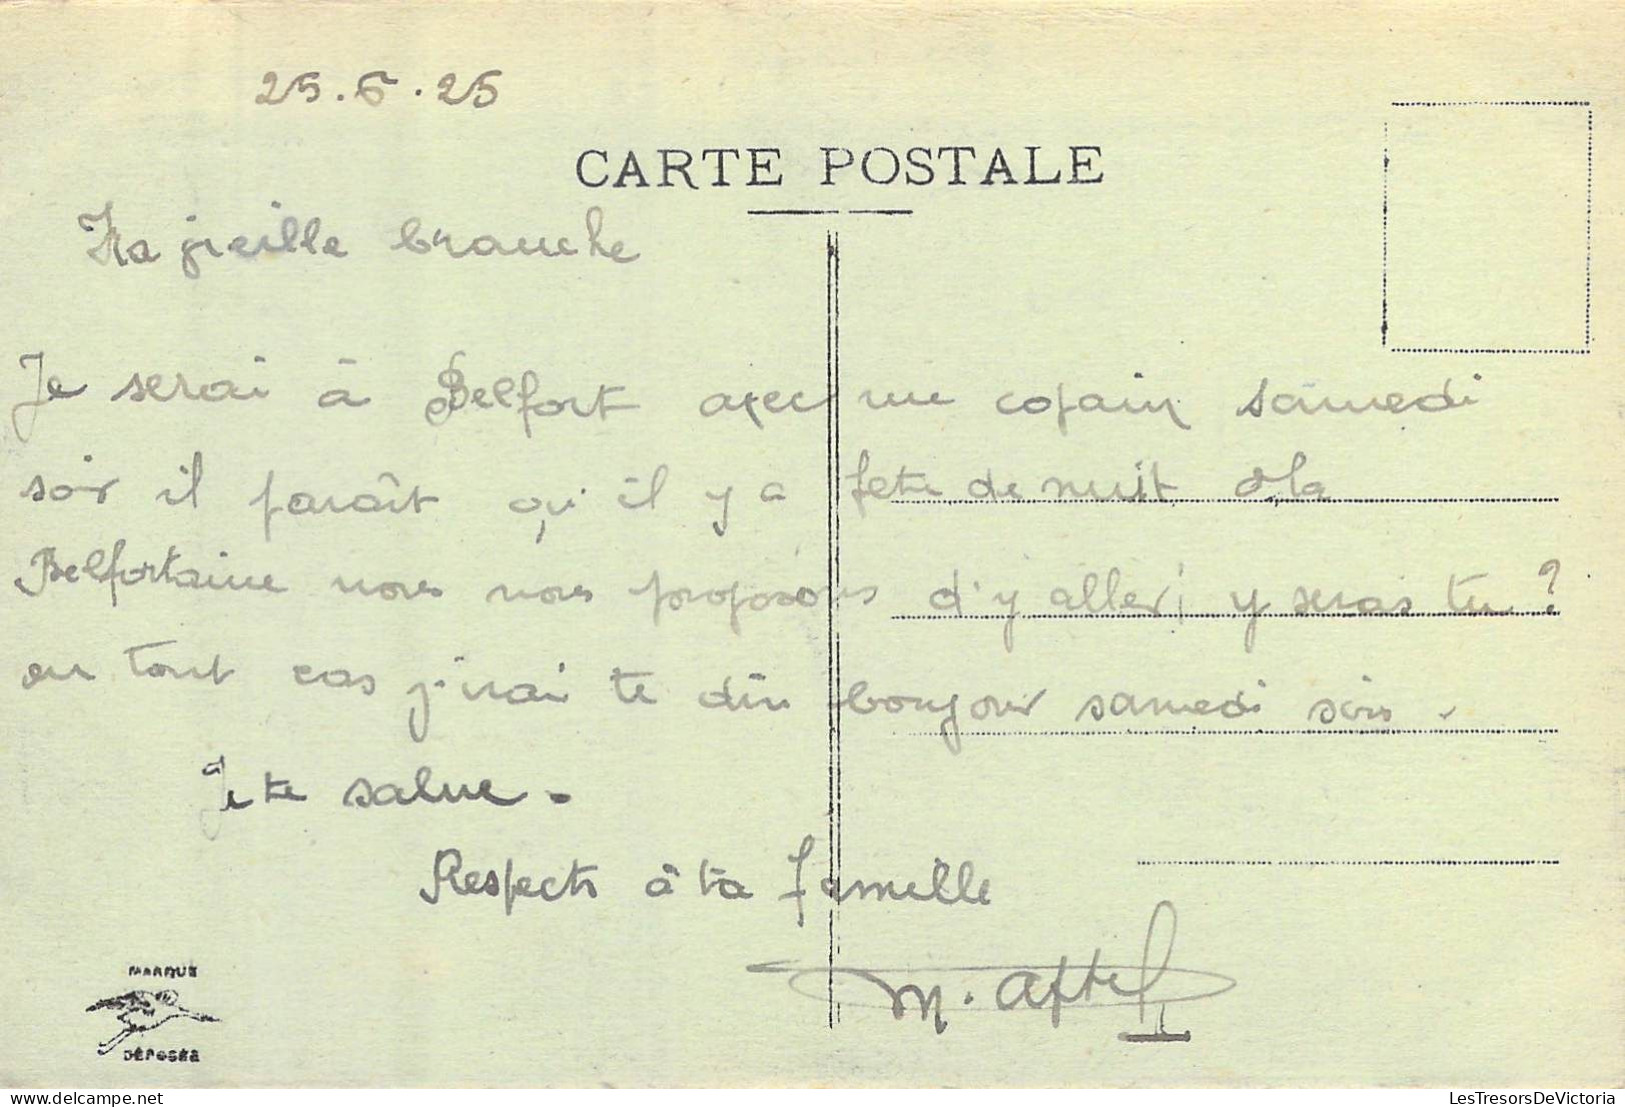 25.6.25
CARTE POSTALE
Ma vieille branche
Je serai à Belfort avec un copain samedi
soir il paraît qu'il y a fete de nuit à la
Belfortaine nous nous proposons d'y aller, y seras tu ?
en tout cas j'irai te dire bonjour samedi soir.
Je te salue.
Respects à ta famille
M.
MARQUE
DÉPOSÉE
delcampe.net
LesTresorsDeVictoria